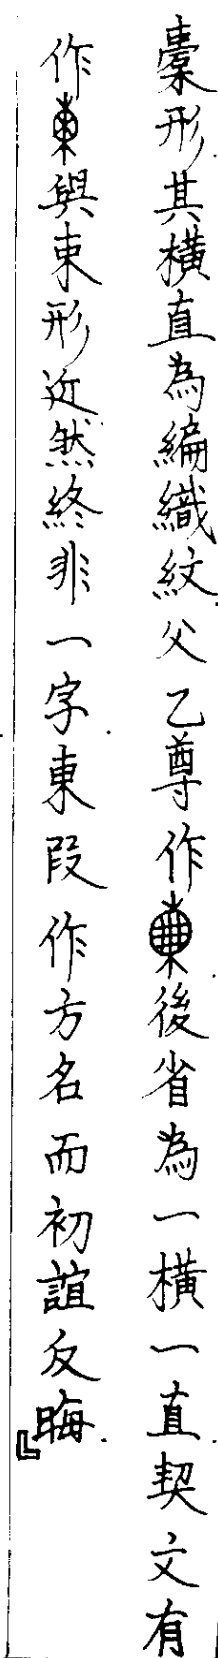 橐形其橫直為編織紋父乙尊作後省為一橫一直契文有
作與束形近然終非一字東叚作方名而初誼反晦』